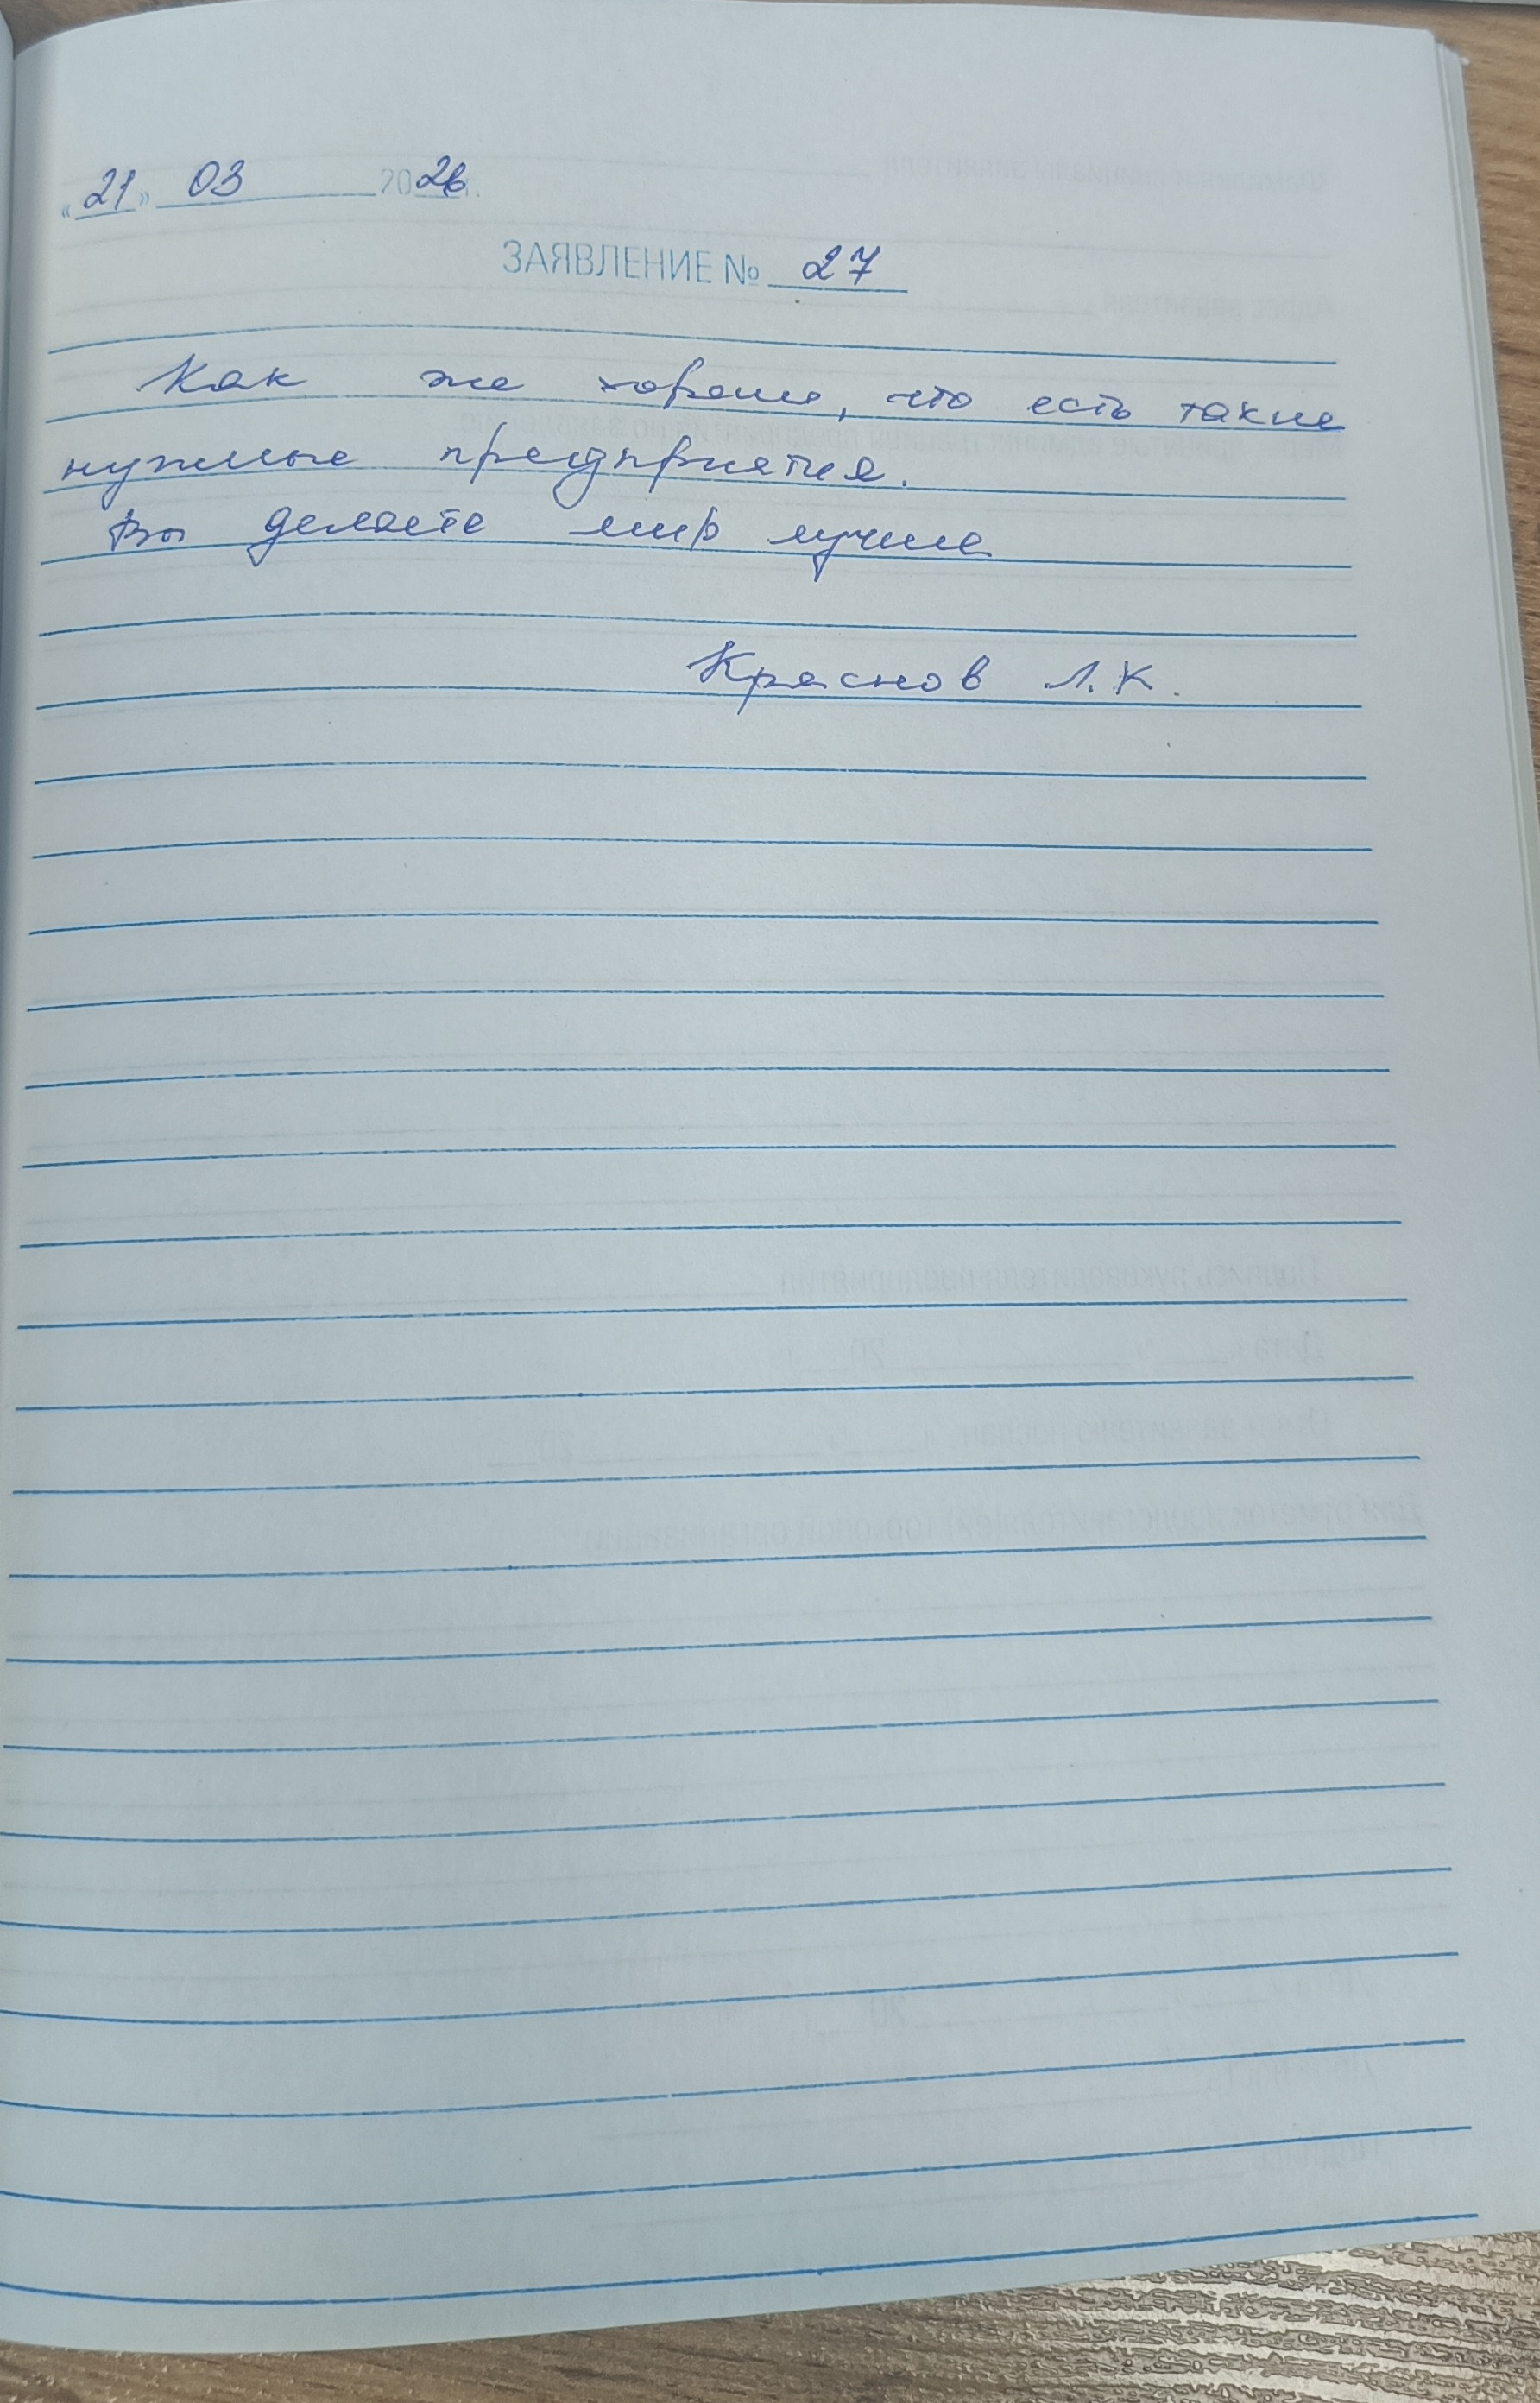 «21» 03 2026г.
ЗАЯВЛЕНИЕ № 27
Как же хорошо, что есть такие
нужные предприятия.
Вы делаете мир лучше
Краснов Л.К.